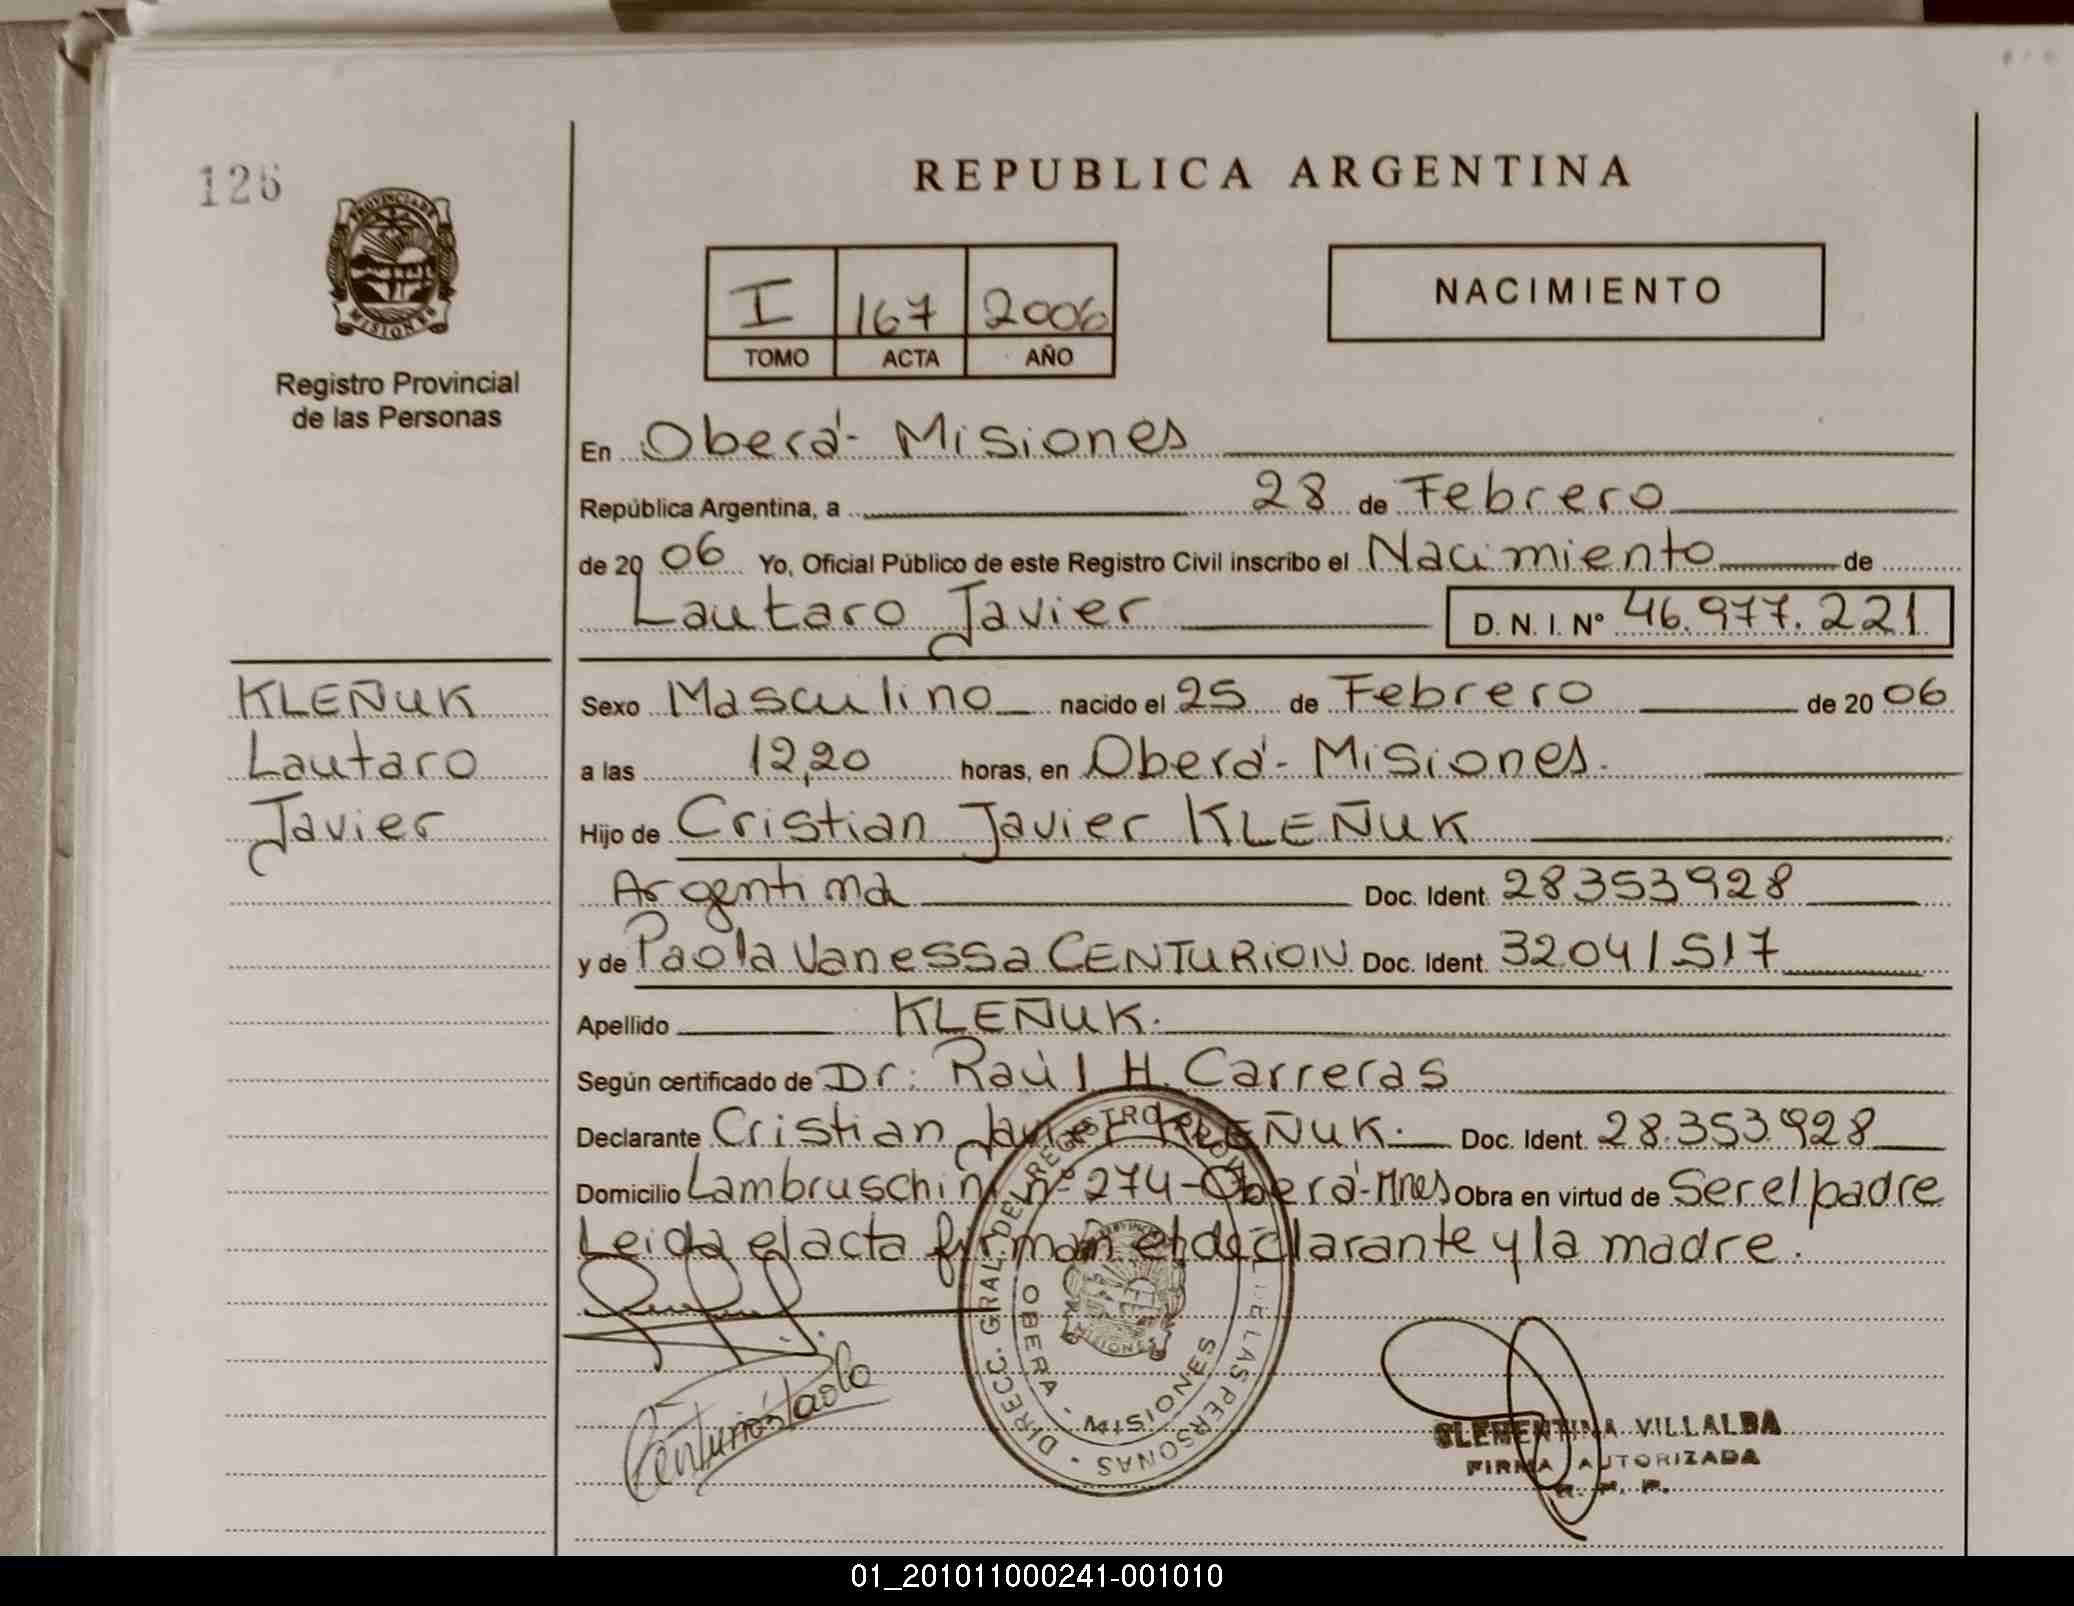 126
PROVINCIA DE
MISIONES
Registro Provincial
de las Personas
REPUBLICA ARGENTINA
I 167 2006
TOMO ACTA AÑO
NACIMIENTO
En Oberá - Misiones
República Argentina, a 28 de Febrero
de 20 06 Yo, Oficial Público de este Registro Civil inscribo el Nacimiento de
Lautaro Javier D. N. I. Nº 46.977.221
KLEÑUK
Lautaro
Javier
Sexo Masculino nacido el 25 de Febrero de 20 06
a las 12,20 horas, en Oberá - Misiones.
Hijo de Cristian Javier KLEÑUK
Argentina Doc. Ident. 28353928
y de Paola Vanessa CENTURION Doc. Ident. 32041517
Apellido KLEÑUK.
Según certificado de Dr. Raúl H. Carreras
Declarante Cristian Javier KLEÑUK. Doc. Ident. 28.353.928
Domicilio Lambruschini nº 274 - Oberá - Mnes Obra en virtud de Ser el padre
Leida el acta firman el declarante y la madre.
DIRECC. GRAL. DE REGISTRO PROV. DE LAS PERSONAS
OBERA - MISIONES
Centurión Paola
CLEMENTINA VILLALBA
FIRMA AUTORIZADA
01_201011000241-001010